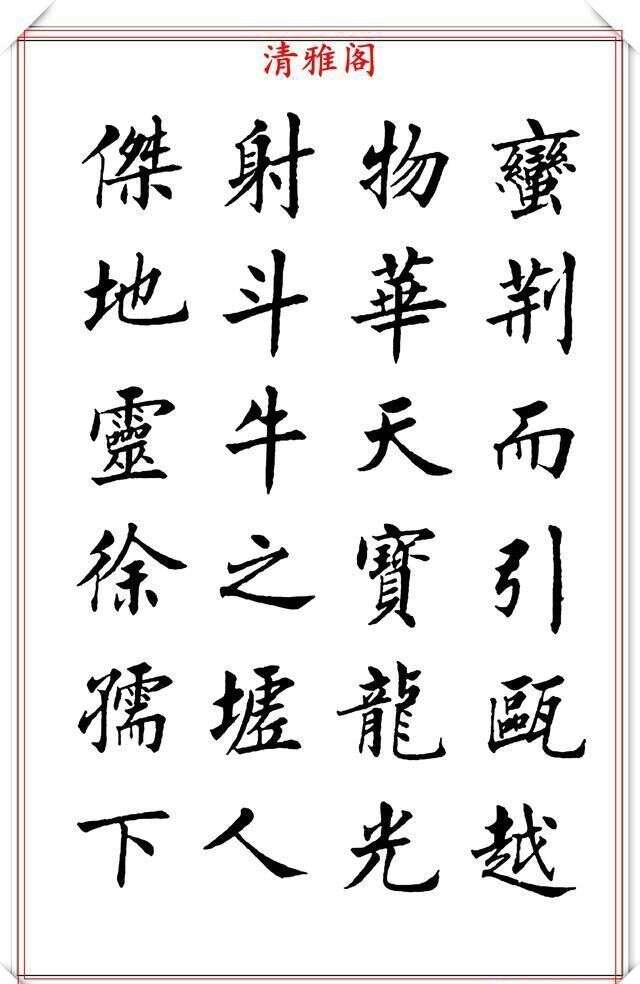 清雅阁
蠻荆而引甌越
物華天寶龍光
射斗牛之墟人
傑地靈徐孺下